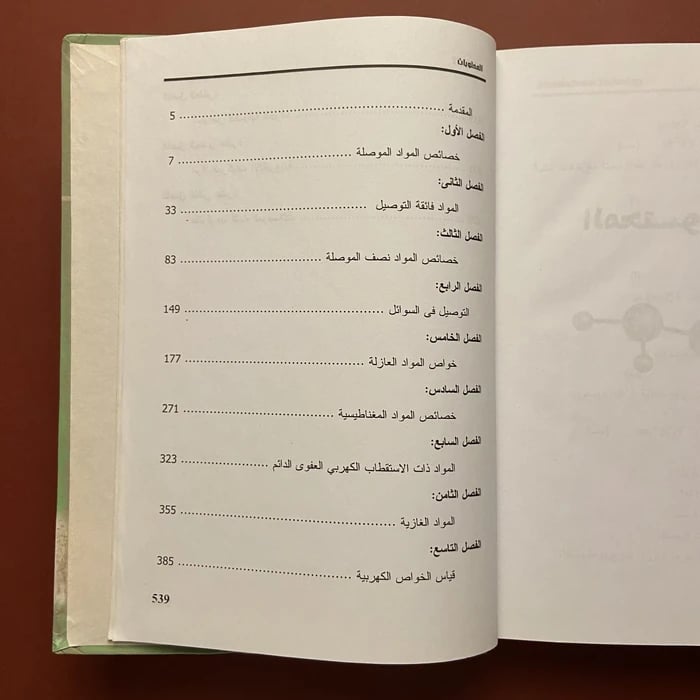 المحتويات
المقدمة ........ 5
الفصل الأول:
خصائص المواد الموصلة ........ 7
الفصل الثانى:
المواد فائقة التوصيل ........ 33
الفصل الثالث:
خصائص المواد نصف الموصلة ........ 83
الفصل الرابع:
التوصيل فى السوائل ........ 149
الفصل الخامس:
خواص المواد العازلة ........ 177
الفصل السادس:
خصائص المواد المغناطيسية ........ 271
الفصل السابع:
المواد ذات الاستقطاب الكهربي العفوى الدائم ........ 323
الفصل الثامن:
المواد الغازية ........ 355
الفصل التاسع:
قياس الخواص الكهربية ........ 385
539